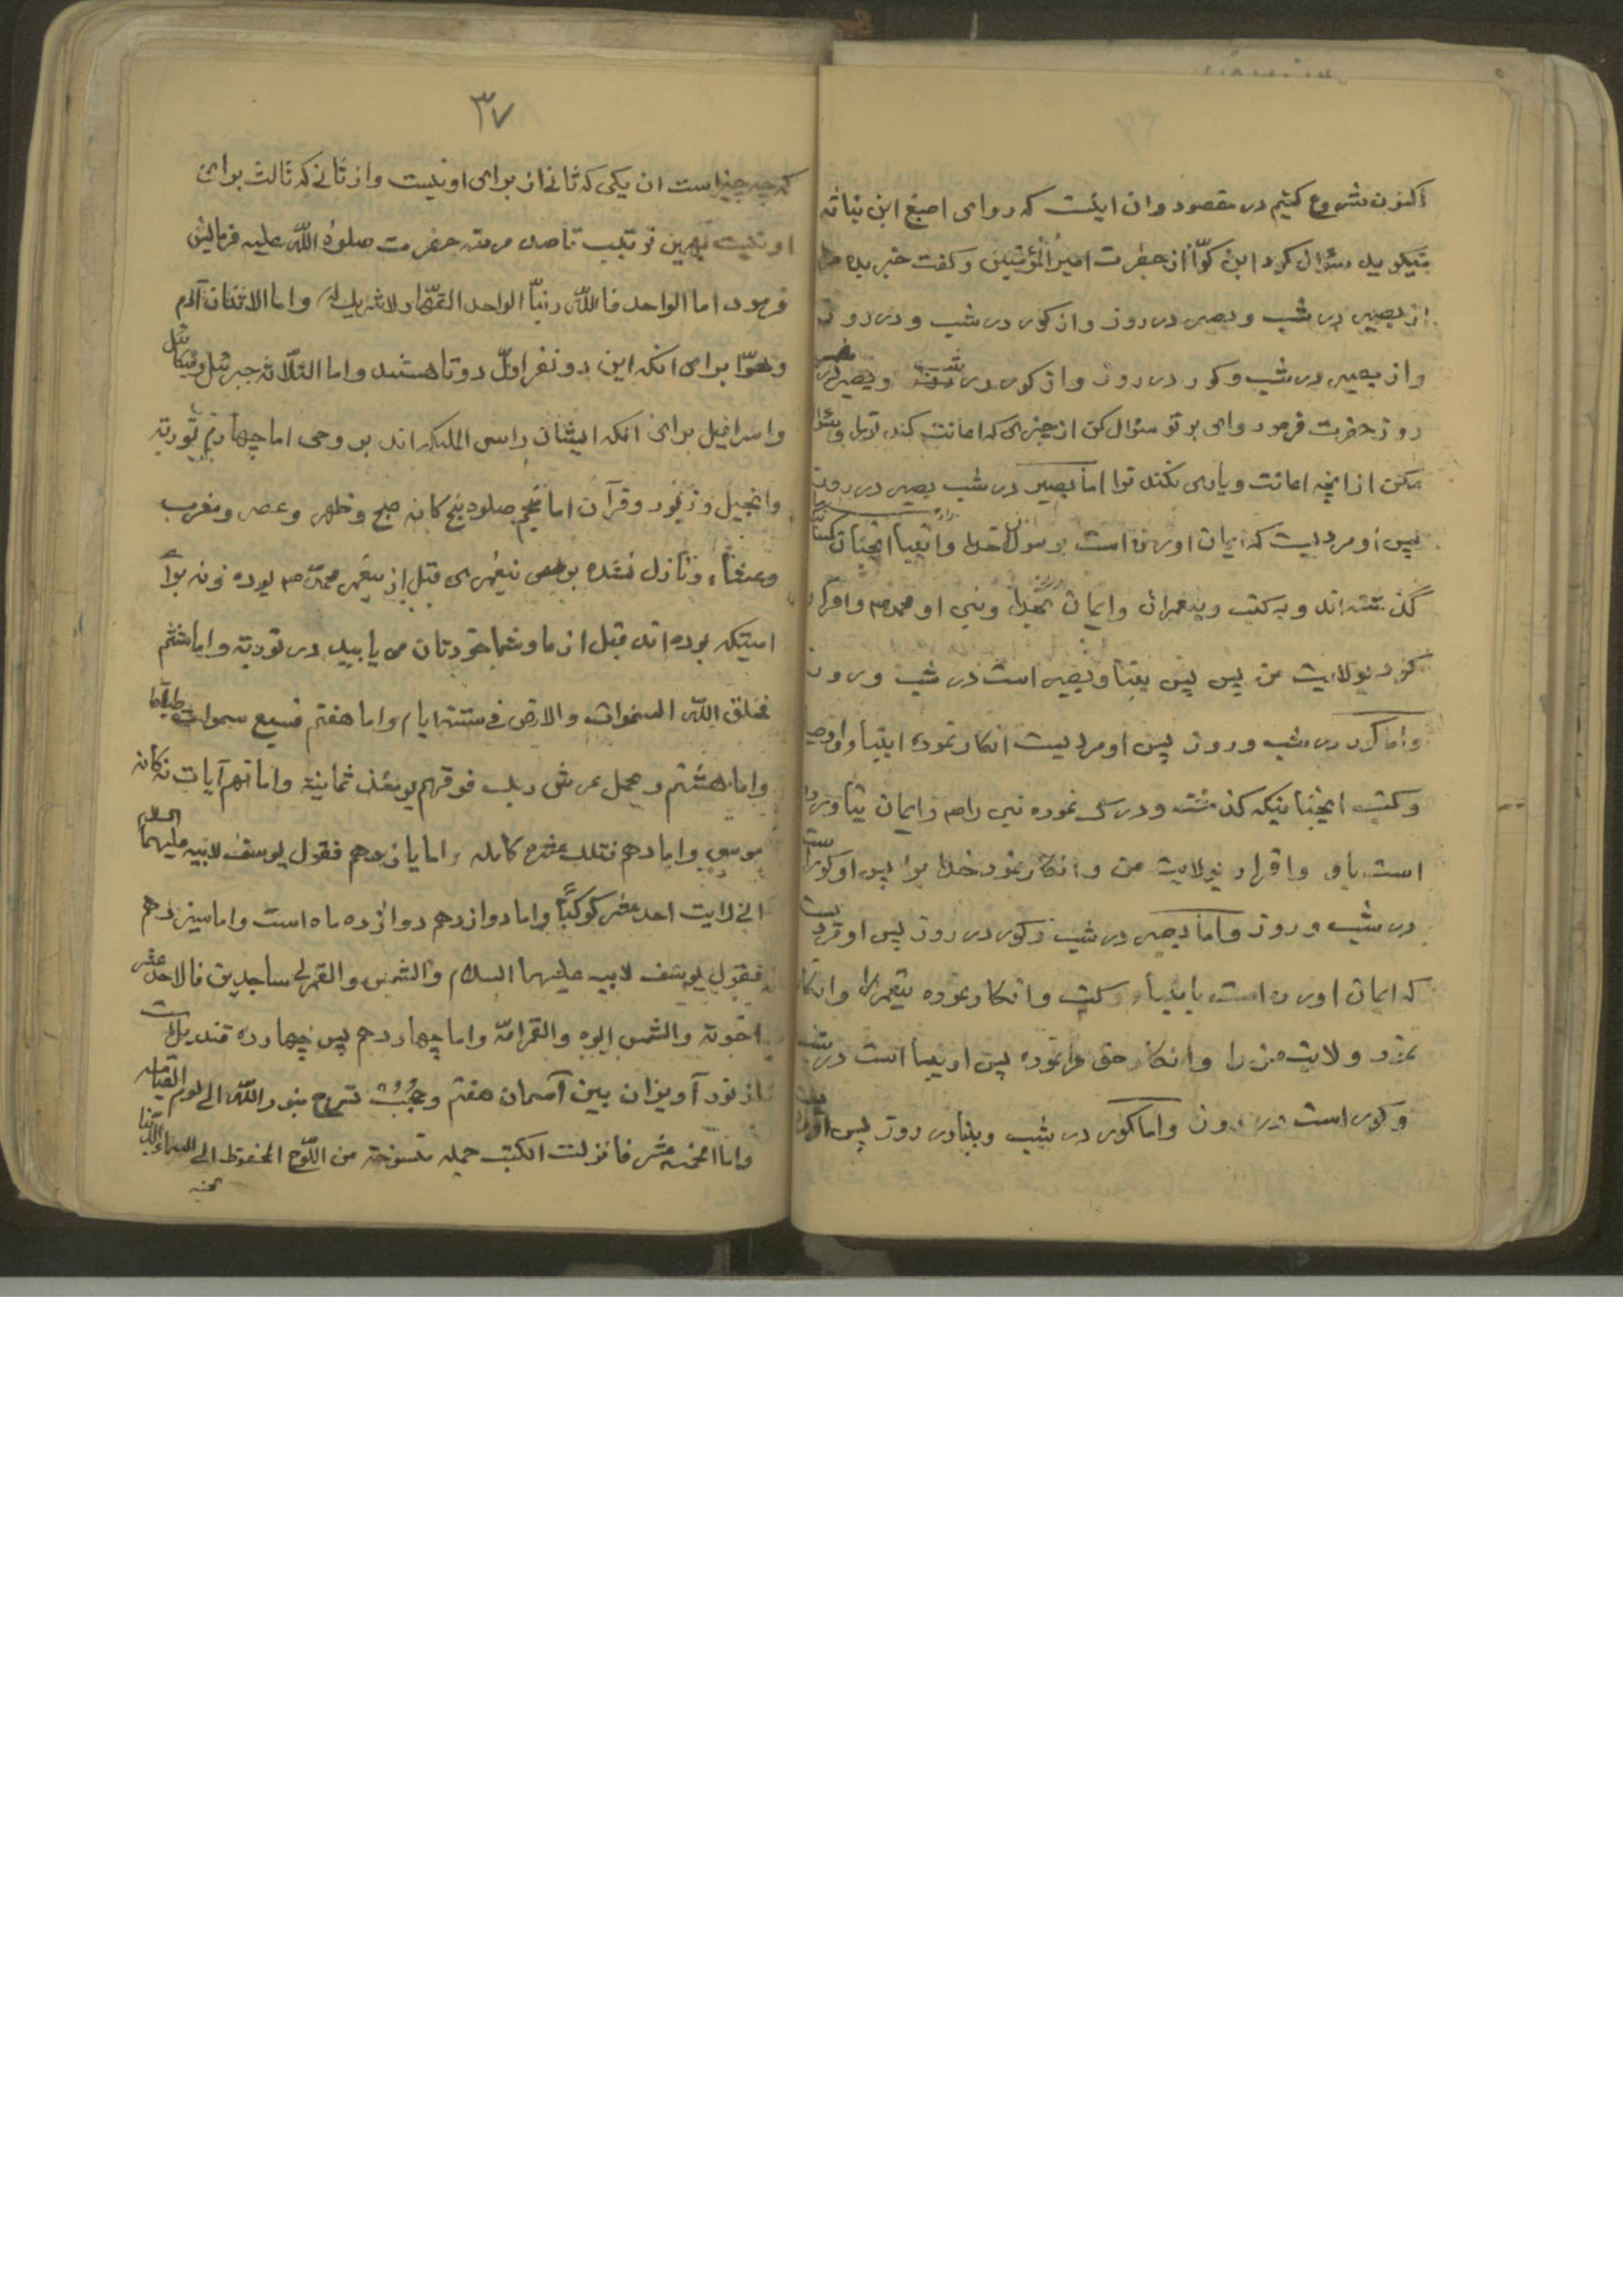 اکنون شروع کنیم در مقصود وان اینست که روای اصبغ ابن نباته
میکوید سئوال کرد ابن کوّا از حضرت امیرالمؤمنین وکفت خبر بده
از بصیر در شب وبصیر در روز واز کور در شب ودر روز
واز بصیر در شب وکور در روز واز کور در شب وبصیر در
روز حضرت فرمود وای بر تو سئوال کن از چیزی که اعانت کند ترا وسئوال
مکن از انچه اعانت ویاری نکند ترا اما بصیر در شب بصیر در روز
پس او مردیست که ایمان اورده است برسول خدا وانبیا انچنان کسانی
گذشته اند وبه کتب وپیغمبران وایمان اورده بخدا ونبی او محمد ص واقرار
کرد بولایت من پس بینا وبصیر است در شب وروز
واما کور در شب وروز پس او مردیست انکار نموده انبیا واوصیا
وکتب انچنانیکه کذشته ودرک نموده نبی را ص وایمان نیاورده
است باو واقرار بولایت من وانکار نمود خدا را پس او کور است
در شب وروز واما بصیر در شب وکور در روز پس او مردیست
که ایمان اورده است بانبیاء وکتب وانکار نموده پیغمبر را وانکار
نمود ولایت من را وانکار حق مرا نموده پس او بینا است در شب
وکور است در روز واما کور در شب وبینا در روز پس او
۳۷
که چه چیز است ان یکی که ثانی از برای او نیست واز ثانی که ثالث برای
او نیست بهمین ترتیب تا صد مرتبه حضرت صلوة اللّه علیه فرمایش
فرمود اما الواحد فاللّه ربنّا الواحد القهّار لا شریك له واما الاثنان آدم
وحوّا برای انکه این دو نفر اوّل دو تا هستند واما الثلاثه جبرئیل ومیکائیل
واسرافیل برای انکه ایشان راس الملئکه اند بر وحی اما چهارم توریة
وانجیل وزبور وقرآن اما پنجم صلوة پنج کانه صبح وظهر وعصر ومغرب
وعشاء ونازل نشده بر پیغمبری قبل از پیغمبر محمّد ص بوده ونه برای
امتیکه بوده اند قبل از ما وشما خودتان می یابید در توریة واما ششم
فخلق اللّه السموات والارض فی ستة ایام واما هفتم فسبع سموات طباقا
واما هشتم ویحمل عرش ربك فوقهم یومئذ ثمانیة واما نهم آیات نه کانه
موسی واما دهم فتلك عشره کامله واما یازدهم فقول یوسف لابیه علیهما السلام
انی رایت احد عشر کوکبًا واما دوازدهم دوازده ماه است واما سیزدهم
فقول یوسف لابیه علیهما السلام والشمس والقمر لی ساجدین فالاحد عشر
اخوته والشمس ابوه والقمر امّه واما چهاردهم پس چهارده قندیل است
از نور آویزان بین آسمان هفتم وحُجُب تسرج بنور اللّه الی یوم القیامه
واما الخمسه عشر فانزلت الکتب جمله منسوخة من اللّوح المحفوظ الی السماء الدنیا